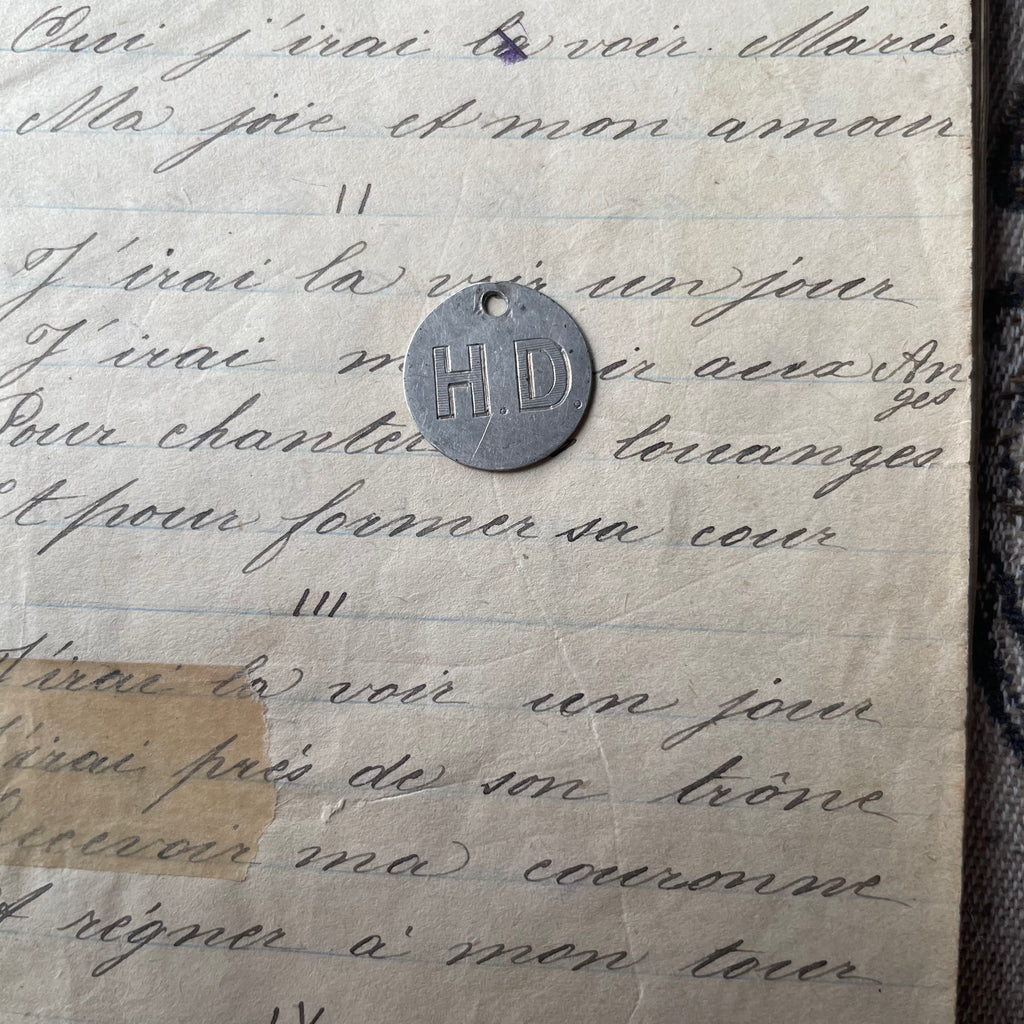 Oui j'irai la voir Marie
Ma joie et mon amour
II
J'irai la voir un jour
J'irai aux An
ges
H.D.
Pour chanter louanges
Et pour former sa cour
III
J'irai la voir un jour
J'irai près de son trône
Recevoir ma couronne
Et régner à mon tour
IV